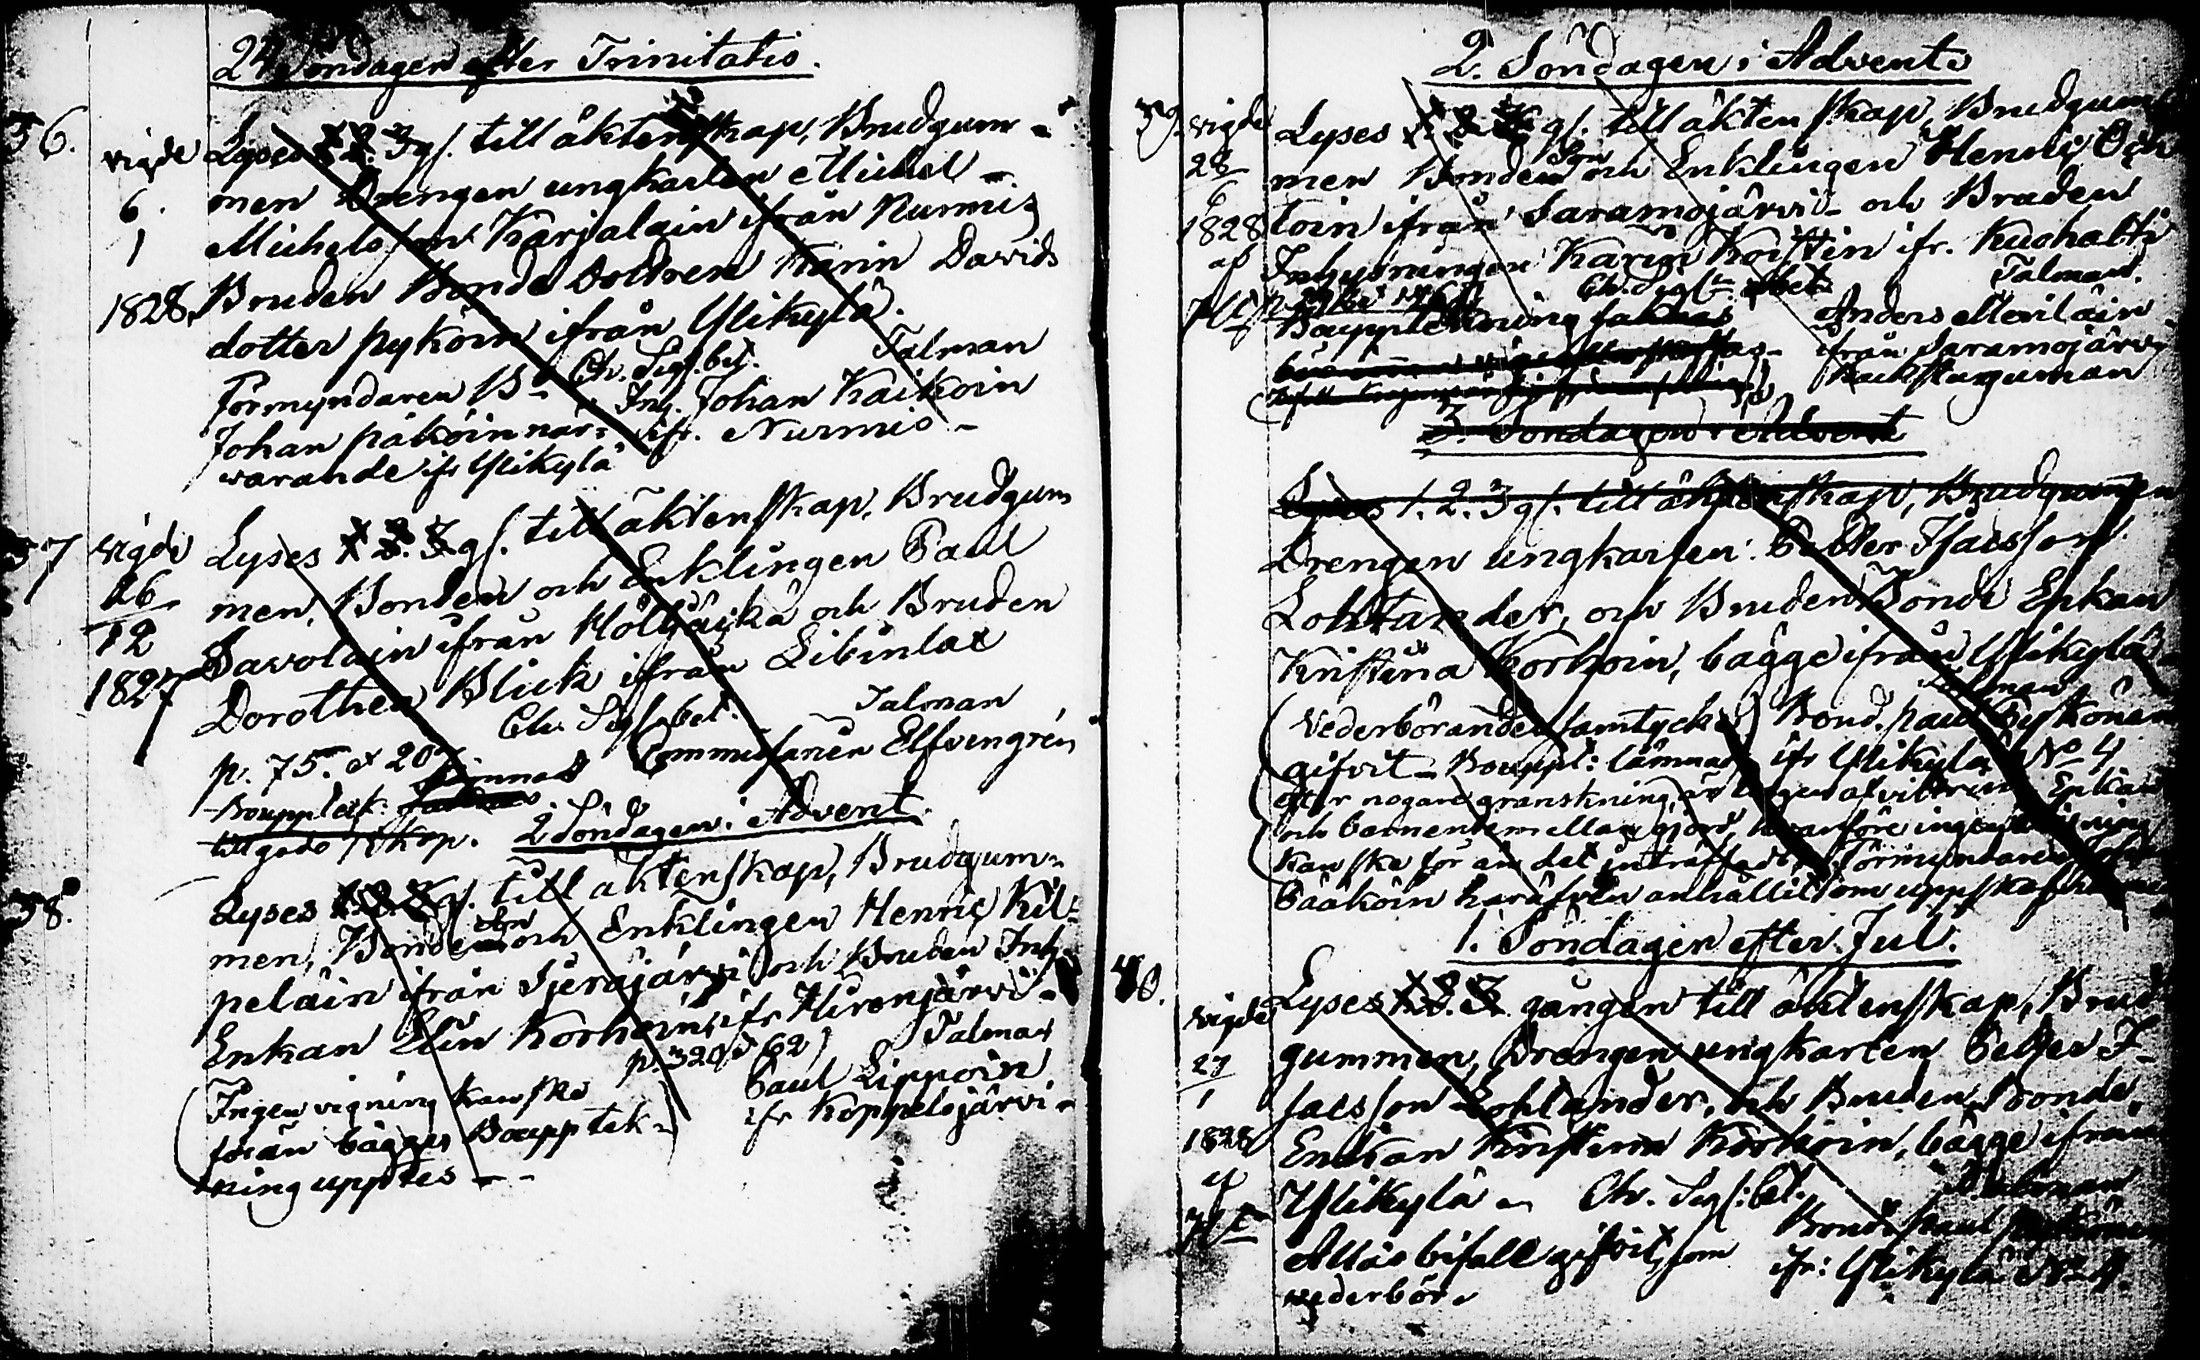 24 Söndagen efter Trinitatis.
36.
vigde
6.
1
1828.
Lyses 1. 2. 3 gs. till äktenskap, Brudgum-
men Drengen ungkarlen Michel
Michelsson Karjalain ifrån Nurmis
Bruden Bonde Dottren Karin Davids
dotter pykoin ifrån Ylikylä.
Ch. Segs. bet. Talman
Förmyndaren Bd. Inh. Johan Kaikoin
Johan päköin när- ifr. Nurmis -
varande ifr Ylikylä
37
vigde
26
12
1827
Lyses 1. 2. 3 gs. till äktenskap, Brudgum
men, Bonden och Enklingen Paul
Savolain ifrån Höljäikä och Bruden
Dorothea Blick ifrån Libinlax
Ch. Segs. bet. Talman
p. 75. et 207 Commissarien Elfvengrén
Bouppteck. lämnad
till godo
2 Söndagen i Advent.
38.
Lyses 1. 2. 3 gs. till äktenskap, Brudgum-
men, Bonde Son och Enklingen Henric Kil-
pelain ifrån Sjerajärvi och Bruden Inh.
Enkan Elin Korhoin ifr Hironjärvi -
p. 320 62) Talman
(Ingen vigning kan ske Paul Lippoin
förän bägges Boupptek- ifr Koppelojärvi -
ning upptes - -
2. Söndagen i Advents
39. vigde
28
6
1828
af
Lyses 1. 2. 3 gs. till äktenskap, Brudgum
men Bonde Son och Enklingen Henric Och
toin ifrån Saramojärvi - och Bruden
Inhysningen Karin Koistin ifr. Kuohatti
Ch. Segs. bet. Talman.
Bouppteckning Anders Meriläin
ifrån Saramojärvi
Backstaguman
3. Söndagen i Advent
Lyses 1. 2. 3 gs. till äktenskap, Brudgummen
Drengen ungkarlen Petter Isacsson
Lohlander, och Bruden Bonde Enkan
Kristina Korhoin, bägge ifrån Ylikylä -
Talman
(Vederbörandes samtycke) Bond. paul Pyköinen
gifvit - Bouppt: lämnad ifr Ylikylä No 4
efter nogare granskning, är ingen afvittring Enkan
och barnen emellan gjord, hvarföre ingen vigning
kan ske för än det inträffadt. Förmyndaren Johan
Pääköin
1. Söndagen efter Jul.
40.
vigde
27
1
1828
af
Lyses 1. 2. 3 gången till äktenskap, Brud
gummen, Drengen ungkarlen Petter I-
sacsson Lohlander, och Bruden Bonde,
Enkan Kristina Korhoin, bägge ifrån
Ylikylä - Ch. Segs: bet. Talman
Bond. paul Pyköinen
Allas bifall gifvit, som ifr: Ylikylä No 4.
vederbör.